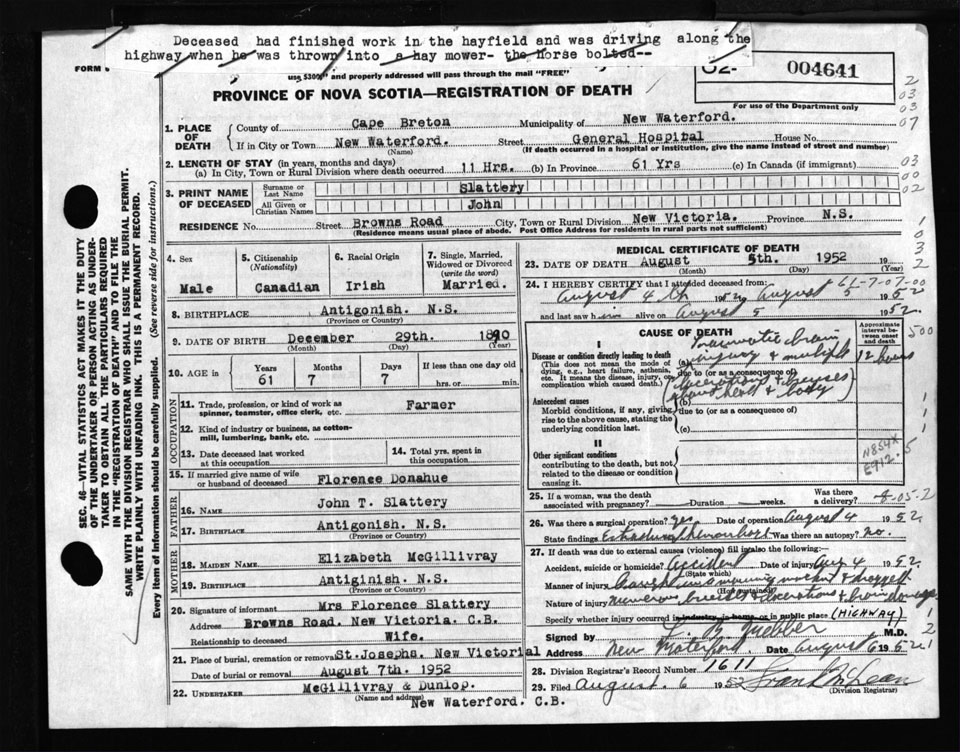 Deceased had finished work in the hayfield and was driving along the
highway when he was thrown into a hay mower- the horse bolted--
FORM
use $300" and properly addressed will pass through the mail "FREE"
004641
PROVINCE OF NOVA SCOTIA—REGISTRATION OF DEATH
For use of the Department only
2
03
03
07
1. PLACE OF DEATH
County of Cape Breton Municipality of New Waterford.
If in City or Town New Waterford. Street General Hospital House No.
(Name) (If death occurred in a hospital or institution, give the name instead of street and number)
2. LENGTH OF STAY (in years, months and days)
(a) In City, Town or Rural Division where death occurred 11 Hrs. (b) In Province 61 Yrs (c) In Canada (if immigrant)
03
00
02
3. PRINT NAME OF DECEASED
Surname or Last Name Slattery
All Given or Christian Names John
RESIDENCE No. Street Browns Road City, Town or Rural Division New Victoria. Province N.S.
(Residence means usual place of abode. Post Office Address for residents in rural parts not sufficient)
4. Sex Male
5. Citizenship (Nationality) Canadian
6. Racial Origin Irish
7. Single, Married, Widowed or Divorced (write the word) Married.
8. BIRTHPLACE Antigonish. N.S.
(Province or Country)
9. DATE OF BIRTH December 29th. 1890
(Month) (Day) (Year)
10. AGE in Years 61 Months 7 Days 7 If less than one day old hrs. or min.
OCCUPATION
11. Trade, profession, or kind of work as spinner, teamster, office clerk, etc. Farmer
12. Kind of industry or business, as cotton-mill, lumbering, bank, etc.
13. Date deceased last worked at this occupation
14. Total yrs. spent in this occupation
15. If married give name of wife or husband of deceased Florence Donahue
FATHER
16. NAME John T. Slattery
17. BIRTHPLACE Antigonish. N.S.
(Province or Country)
MOTHER
18. MAIDEN NAME Elizabeth McGillivray
19. BIRTHPLACE Antiginish. N.S.
(Province or Country)
20. Signature of informant Mrs Florence Slattery
Address Browns Road. New Victoria. C.B.
Relationship to deceased Wife.
21. Place of burial, cremation or removal St.Josephs. New Victorial
Date of burial or removal August 7th. 1952
22. UNDERTAKER McGillivray & Dunlop.
(Name and address)
New Waterford. C.B.
MEDICAL CERTIFICATE OF DEATH
23. DATE OF DEATH August 5th. 1952 19
(Month) (Day) (Year)
24. I HEREBY CERTIFY that I attended deceased from: 61-7-07-00
August 4th 1952 August 5 1952
and last saw him alive on August 5 1952
CAUSE OF DEATH
Approximate interval between onset and death
I
Disease or condition directly leading to death
(This does not mean the mode of dying, e.g., heart failure, asthenia, etc. It means the disease, injury, or complication which caused death.)
(a) Traumatic brain
injury & multiple 12 hours
due to (or as a consequence of)
lacerations & bruises
about head & body
Antecedent causes
Morbid conditions, if any, giving rise to the above cause, stating the underlying condition last.
(b)
due to (or as a consequence of)
(c)
II
Other significant conditions
contributing to the death, but not related to the disease or condition causing it.
N854X
E912.5
25. If a woman, was the death associated with pregnancy? Duration weeks. Was there a delivery?
26. Was there a surgical operation? yes Date of operation August 4 1952
State findings Extradural hemorrhage Was there an autopsy? no.
27. If death was due to external causes (violence) fill in also the following:—
Accident, suicide or homicide? accident Date of injury Aug 4 1952
(State which)
Manner of injury
(How sustained)
Nature of injury Numerous bruises & lacerations & brain damage
Specify whether injury occurred in industry in home or in public place (HIGHWAY)
Signed by M.D.
Address New Waterford Date August 6 1952
28. Division Registrar's Record Number 1611
29. Filed August 6 1952 Frank McLean
(Division Registrar)
SEC. 46—VITAL STATISTICS ACT MAKES IT THE DUTY
OF THE UNDERTAKER OR PERSON ACTING AS UNDERTAKER TO OBTAIN ALL THE PARTICULARS REQUIRED
IN THE "REGISTRATION OF DEATH" AND TO FILE THE
SAME WITH THE DIVISION REGISTRAR WHO SHALL ISSUE THE BURIAL PERMIT.
WRITE PLAINLY WITH UNFADING INK. THIS IS A PERMANENT RECORD.
Every item of information should be carefully supplied. (See reverse side for instructions.)